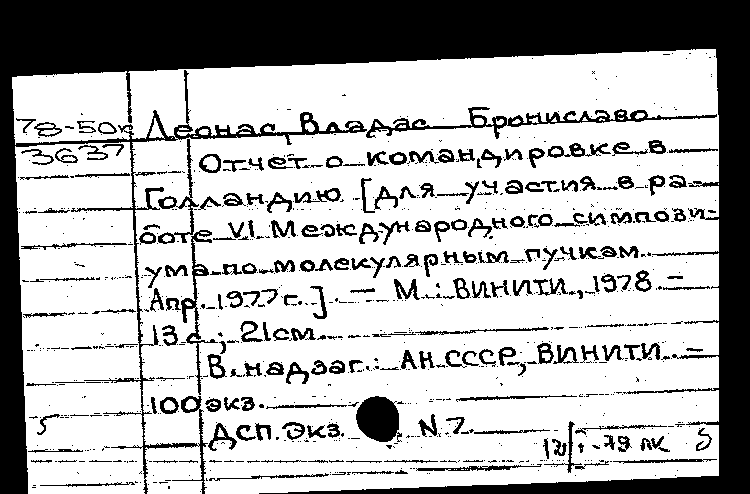 78-50к Леонас, Владас Брониславо
3637 Отчет о командировке в
Голландию [для участия в ра-
боте VI Международного симпози-
ума по молекулярным пучкам.
Апр. 1977 г.] — М.: ВИНИТИ, 1978 -
13 с.; 21 см.
В надзаг.: АН СССР, ВИНИТИ. -
100 экз.
ДСП. Экз. N 7.
5
-79 ЛК 5